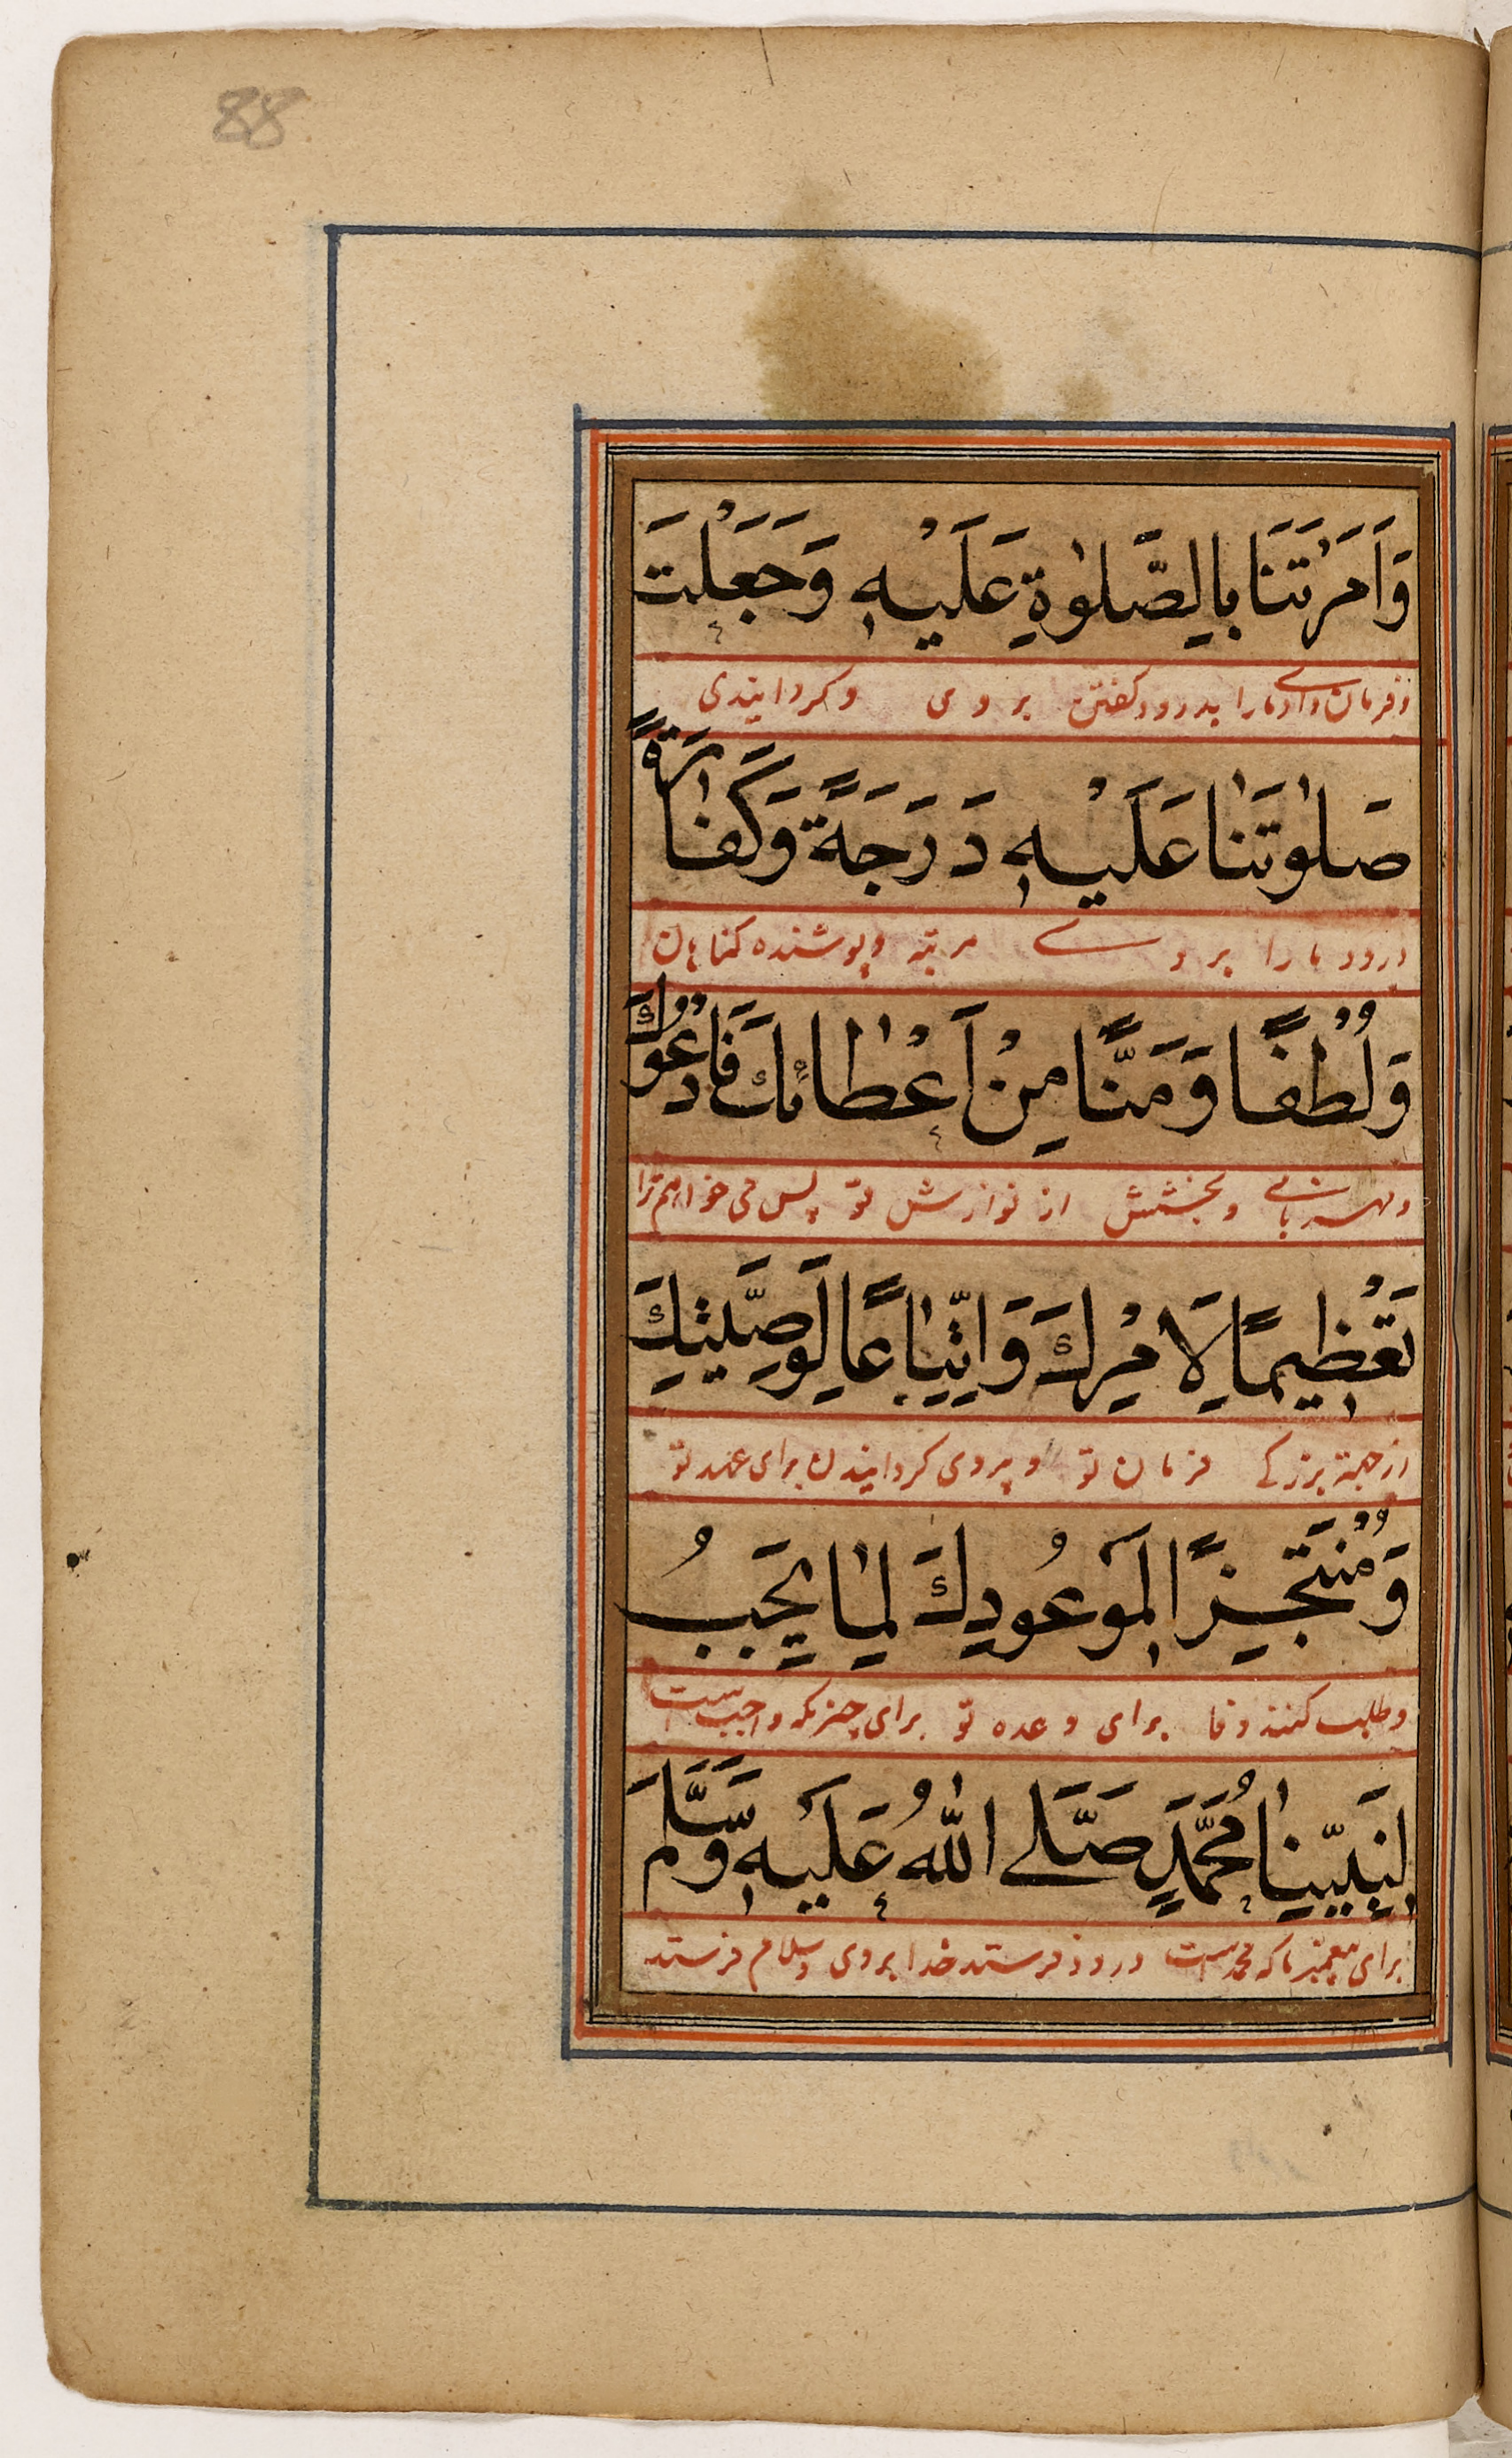 88
وَاَمَرْتَنَا بِالصَّلٰوةِ عَلَيْهِ وَجَعَلْتَ
و فرمان دادی مارا بدرود گفتن بر وی و گردانیدی
صَلٰوتَنَا عَلَيْهِ دَرَجَةً وَكَفَّارَةً
درود مارا بر وے مرتبه و پوشنده گناهان
وَلُطْفًا وَمَنًّا مِنْ اَعْطَائِكَ فَادْعُوكَ
و مهربانی و بخشش از نوازش تو پس می خواهم ترا
تَعْظِيمًا لِاَمْرِكَ وَاتِّبَاعًا لِوَصِيَّتِكَ
از جهة بزرگے فرمان تو و پیروی گردانیدن برای عهد تو
وَمُنْتَجِزًا لِمَوْعُودِكَ لِمَا يَجِبُ
و طلب کننده وفا برای وعده تو برای چیزیکه واجب است
لِنَبِيِّنَا مُحَمَّدٍ صَلَّى اللّٰهُ عَلَيْهِ وَسَلَّمَ
برای پیغمبر ما که محمد است درود فرستد خدا بر وی و سلام فرستد